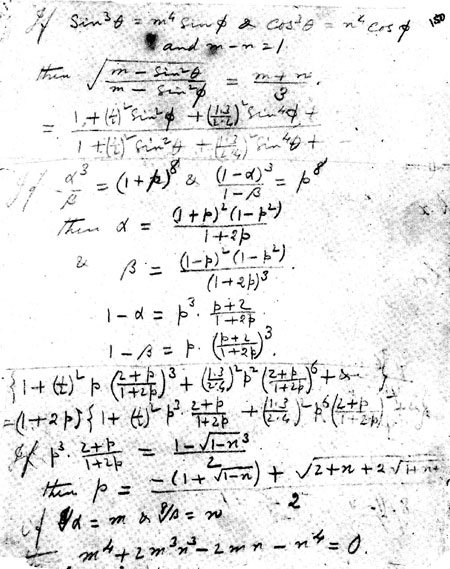 If Sin³θ = m⁴ sin φ & cos³θ = n⁴ cos φ 150
and m−n = 1
then √((m − sin²θ)/(m − sin²φ)) = (m+n)/3
= (1 + (½)² Sin²φ + (1·3/2·4)² Sin⁴φ +)/(1 + (½)² sin²θ + (1·3/2·4)² sin⁴θ +)
If α³/β = (1+p)⁸ & (1−α)³/(1−β) = p⁸
then α = (1+p)²(1−p²)/(1+2p)
& β = (1−p)²(1−p²)/(1+2p)³.
1−α = p³ · (p+2)/(1+2p)
1−β = p · ((p+2)/(1+2p))³.
{1 + (½)² p · ((2+p)/(1+2p))³ + (1·3/2·4)² p² ((2+p)/(1+2p))⁶ + &
= (1+2p) {1 + (½)² p³ · (2+p)/(1+2p) + (1·3/2·4)² p⁶ ((2+p)/(1+2p))
If p³ · (2+p)/(1+2p) = (1 − √(1−n³))/2
then p = (−(1+√(1−n)) + √(2+n+2√(1+n)))/2
if ⁸√α = m & ⁸√β = n
m⁴ + 2m³n³ − 2mn − n⁴ = 0.